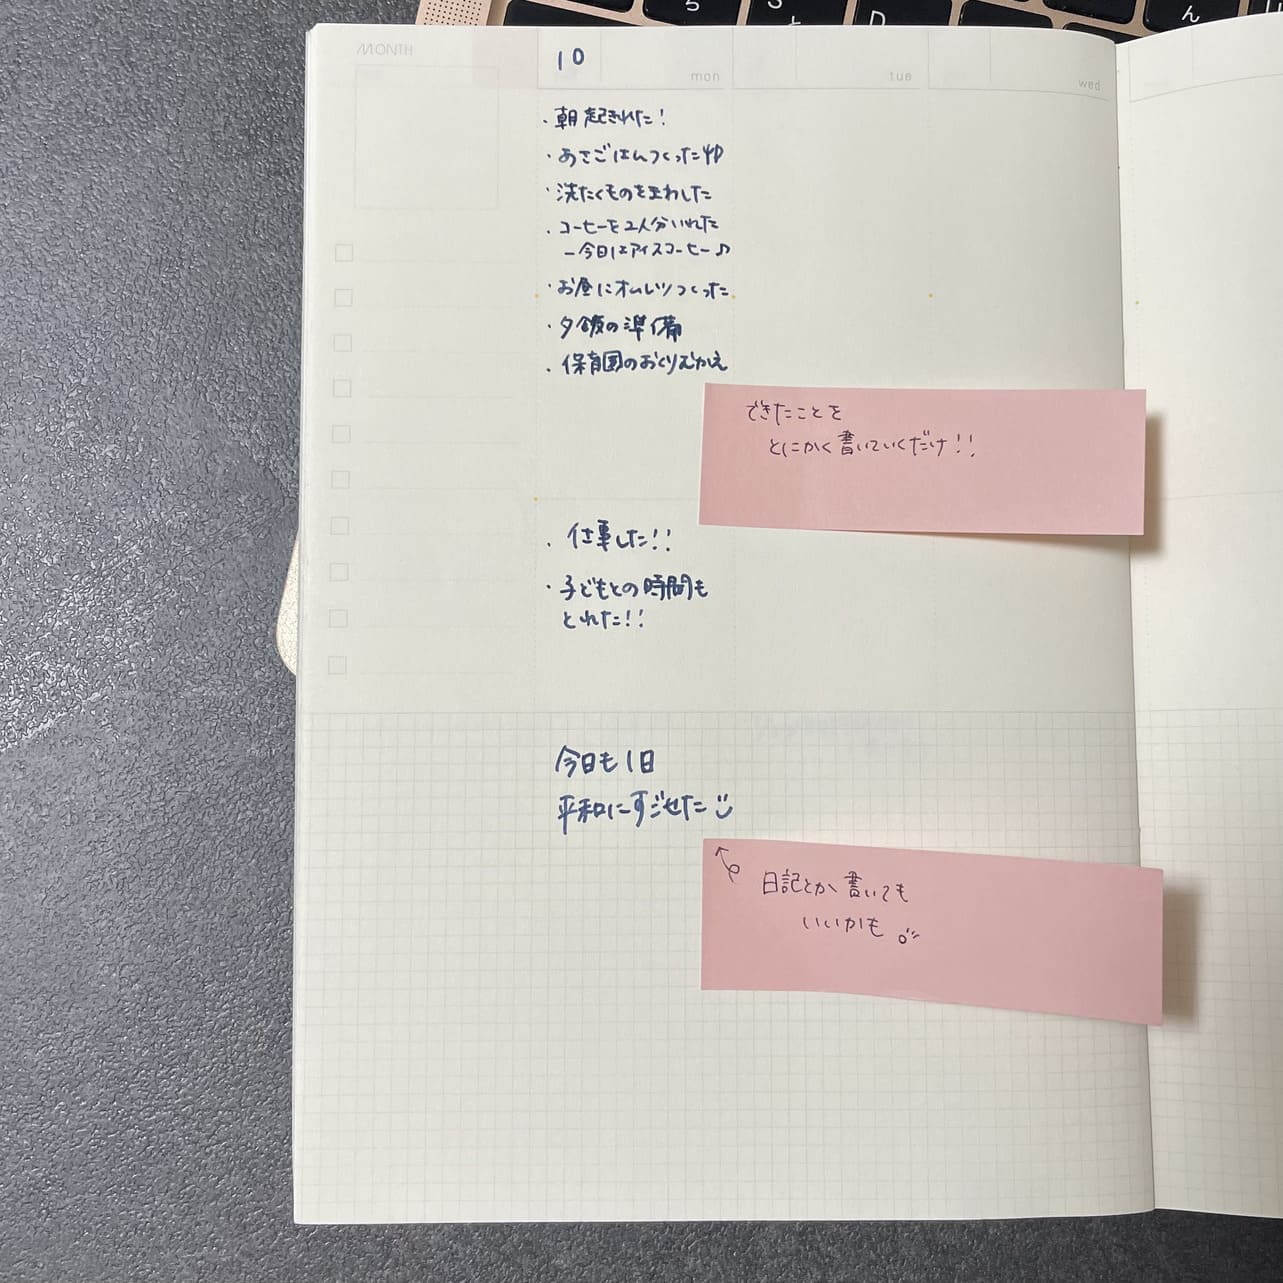 ち
S
と
D
ん
MONTH
10
mon
tue
wed
・朝起きれた！
・あさごはんつくった
・洗たくものをまわした
・コーヒーを2人分いれた
－今日はアイスコーヒー♪
・お昼にオムレツつくった
・夕飯の準備
・保育園のおくりむかえ
できたことを
とにかく書いていくだけ！！
・仕事した！！
・子どもとの時間も
とれた！！
今日も1日
平和にすごせた
日記とか書いても
いいかも